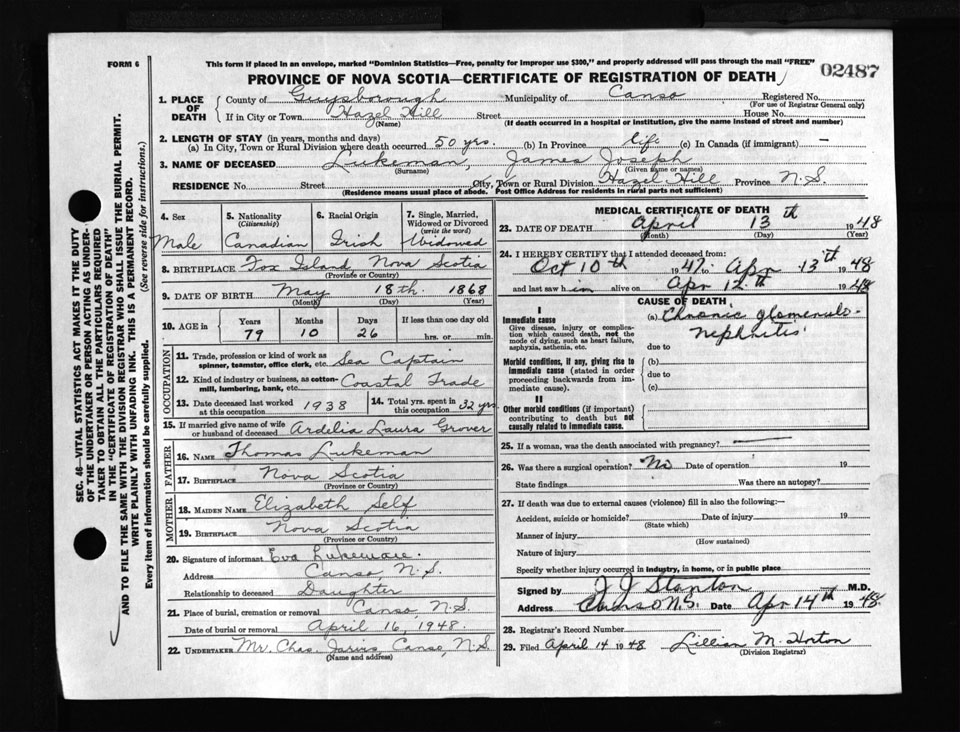 FORM 6
This form if placed in an envelope, marked "Dominion Statistics—Free, penalty for improper use $300," and properly addressed will pass through the mail "FREE"
PROVINCE OF NOVA SCOTIA—CERTIFICATE OF REGISTRATION OF DEATH
02487
1. PLACE OF DEATH { County of Guysborough Municipality of Canso Registered No.
(For use of Registrar General only)
If in City or Town Hazel Hill Street House No.
(Name) (If death occurred in a hospital or institution, give the name instead of street and number)
2. LENGTH OF STAY (in years, months and days)
(a) In City, Town or Rural Division where death occurred 50 yrs. (b) In Province life (c) In Canada (if immigrant) —
3. NAME OF DECEASED Lukeman, James Joseph
(Surname) (Given name or names)
RESIDENCE No. Street City, Town or Rural Division Hazel Hill Province N.S.
(Residence means usual place of abode. Post Office Address for residents in rural parts not sufficient)
4. Sex
Male
5. Nationality
(Citizenship)
Canadian
6. Racial Origin
Irish
7. Single, Married, Widowed or Divorced
(write the word)
Widowed
8. BIRTHPLACE Fox Island Nova Scotia
(Province or Country)
9. DATE OF BIRTH May 18th. 1868
(Month) (Day) (Year)
10. AGE in Years Months Days If less than one day old
79 10 26 hrs. or min.
OCCUPATION
11. Trade, profession or kind of work as spinner, teamster, office clerk, etc. Sea Captain
12. Kind of industry or business, as cotton-mill, lumbering, bank, etc. Coastal Trade
13. Date deceased last worked at this occupation 1938
14. Total yrs. spent in this occupation 32 yrs
15. If married give name of wife or husband of deceased Ardelia Laura Grover
FATHER
16. NAME Thomas Lukeman
17. BIRTHPLACE Nova Scotia
(Province or Country)
MOTHER
18. MAIDEN NAME Elizabeth Self
19. BIRTHPLACE Nova Scotia
(Province or Country)
20. Signature of informant Eva Lukeman.
Address Canso N.S.
Relationship to deceased Daughter
21. Place of burial, cremation or removal Canso N.S.
Date of burial or removal April 16, 1948.
22. UNDERTAKER Mr. Chas. Jarvis Canso, N.S.
(Name and address)
MEDICAL CERTIFICATE OF DEATH
23. DATE OF DEATH April 13th 1948
(Month) (Day) (Year)
24. I HEREBY CERTIFY that I attended deceased from:
Oct 10th 1947 to Apr 13th 1948
and last saw him alive on Apr 12th 1948
CAUSE OF DEATH
I
Immediate cause
Give disease, injury or complication which caused death, not the mode of dying, such as heart failure, asphyxia, asthenia, etc.
(a) Chronic glomerulo-
nephritis
due to
Morbid conditions, if any, giving rise to immediate cause (stated in order proceeding backwards from immediate cause).
(b)
due to
(c)
II
Other morbid conditions (if important) contributing to death but not causally related to immediate cause.
25. If a woman, was the death associated with pregnancy? —
26. Was there a surgical operation? No Date of operation 19
State findings Was there an autopsy?
27. If death was due to external causes (violence) fill in also the following:—
Accident, suicide or homicide? Date of injury 19
(State which)
Manner of injury
(How sustained)
Nature of injury
Specify whether injury occurred in industry, in home, or in public place
Signed by J J Stanton M.D.
Address Canso N.S. Date Apr 14th 1948.
28. Registrar's Record Number
29. Filed April 14 1948 Lillian M. Horton
(Division Registrar)
SEC. 46—VITAL STATISTICS ACT MAKES IT THE DUTY
OF THE UNDERTAKER OR PERSON ACTING AS UNDER-
TAKER TO OBTAIN ALL THE PARTICULARS REQUIRED
IN THE "CERTIFICATE OF REGISTRATION OF DEATH"
AND TO FILE THE SAME WITH THE DIVISION REGISTRAR WHO SHALL ISSUE THE BURIAL PERMIT.
WRITE PLAINLY WITH UNFADING INK. THIS IS A PERMANENT RECORD.
Every item of information should be carefully supplied. (See reverse side for instructions.)